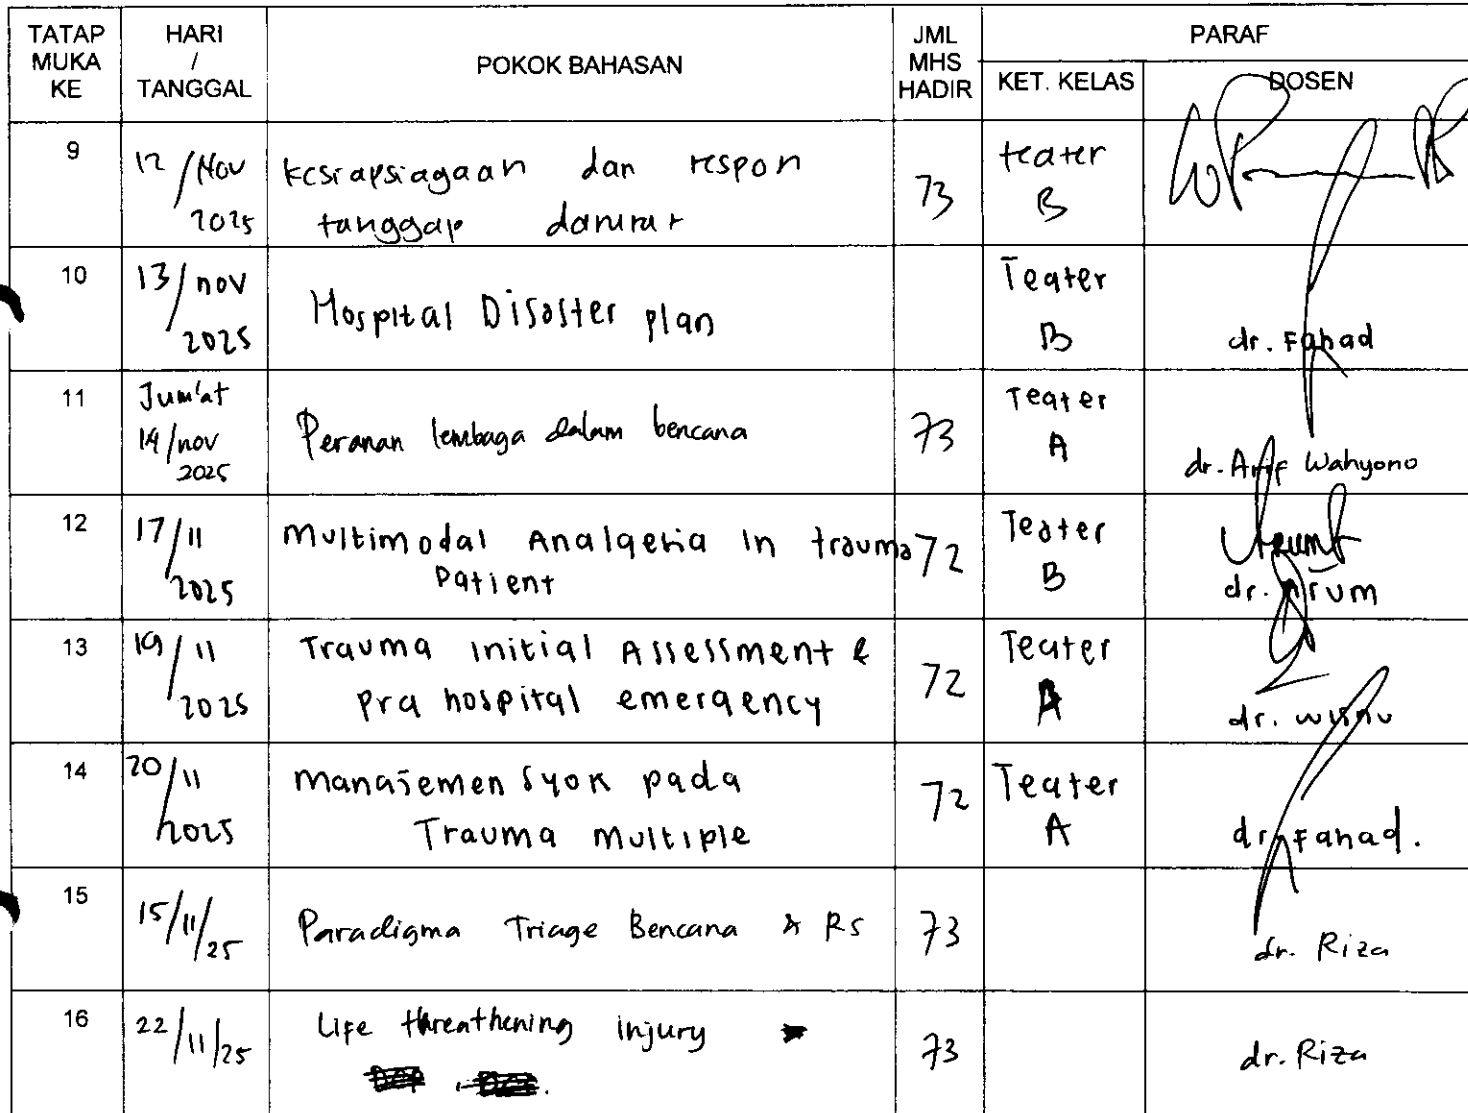 TATAP MUKA KE
HARI / TANGGAL
POKOK BAHASAN
JML MHS HADIR
PARAF
KET. KELAS
DOSEN
9
12/Nov 2025
kesiapsiagaan dan respon
tanggap darurat
73
teater B
10
13/nov 2025
Hospital Disaster plan
Teater B
dr. Fahad
11
Jum'at 14/nov 2025
Peranan lembaga dalam bencana
73
Teater A
dr. Arif Wahyono
12
17/11 2025
Multimodal Analgesia in trauma
Patient
72
Teater B
dr. Arum
13
19/11 2025
Trauma initial Assessment &
pra hospital emergency
72
Teater A
dr. Wisnu
14
20/11 2025
Manajemen syok pada
Trauma Multiple
72
Teater A
dr. Fahad.
15
15/11/25
Paradigma Triage Bencana & RS
73
dr. Riza
16
22/11/25
Life threathening injury
73
dr. Riza